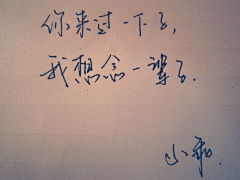 你来过一下子，
我想念一辈子.
小